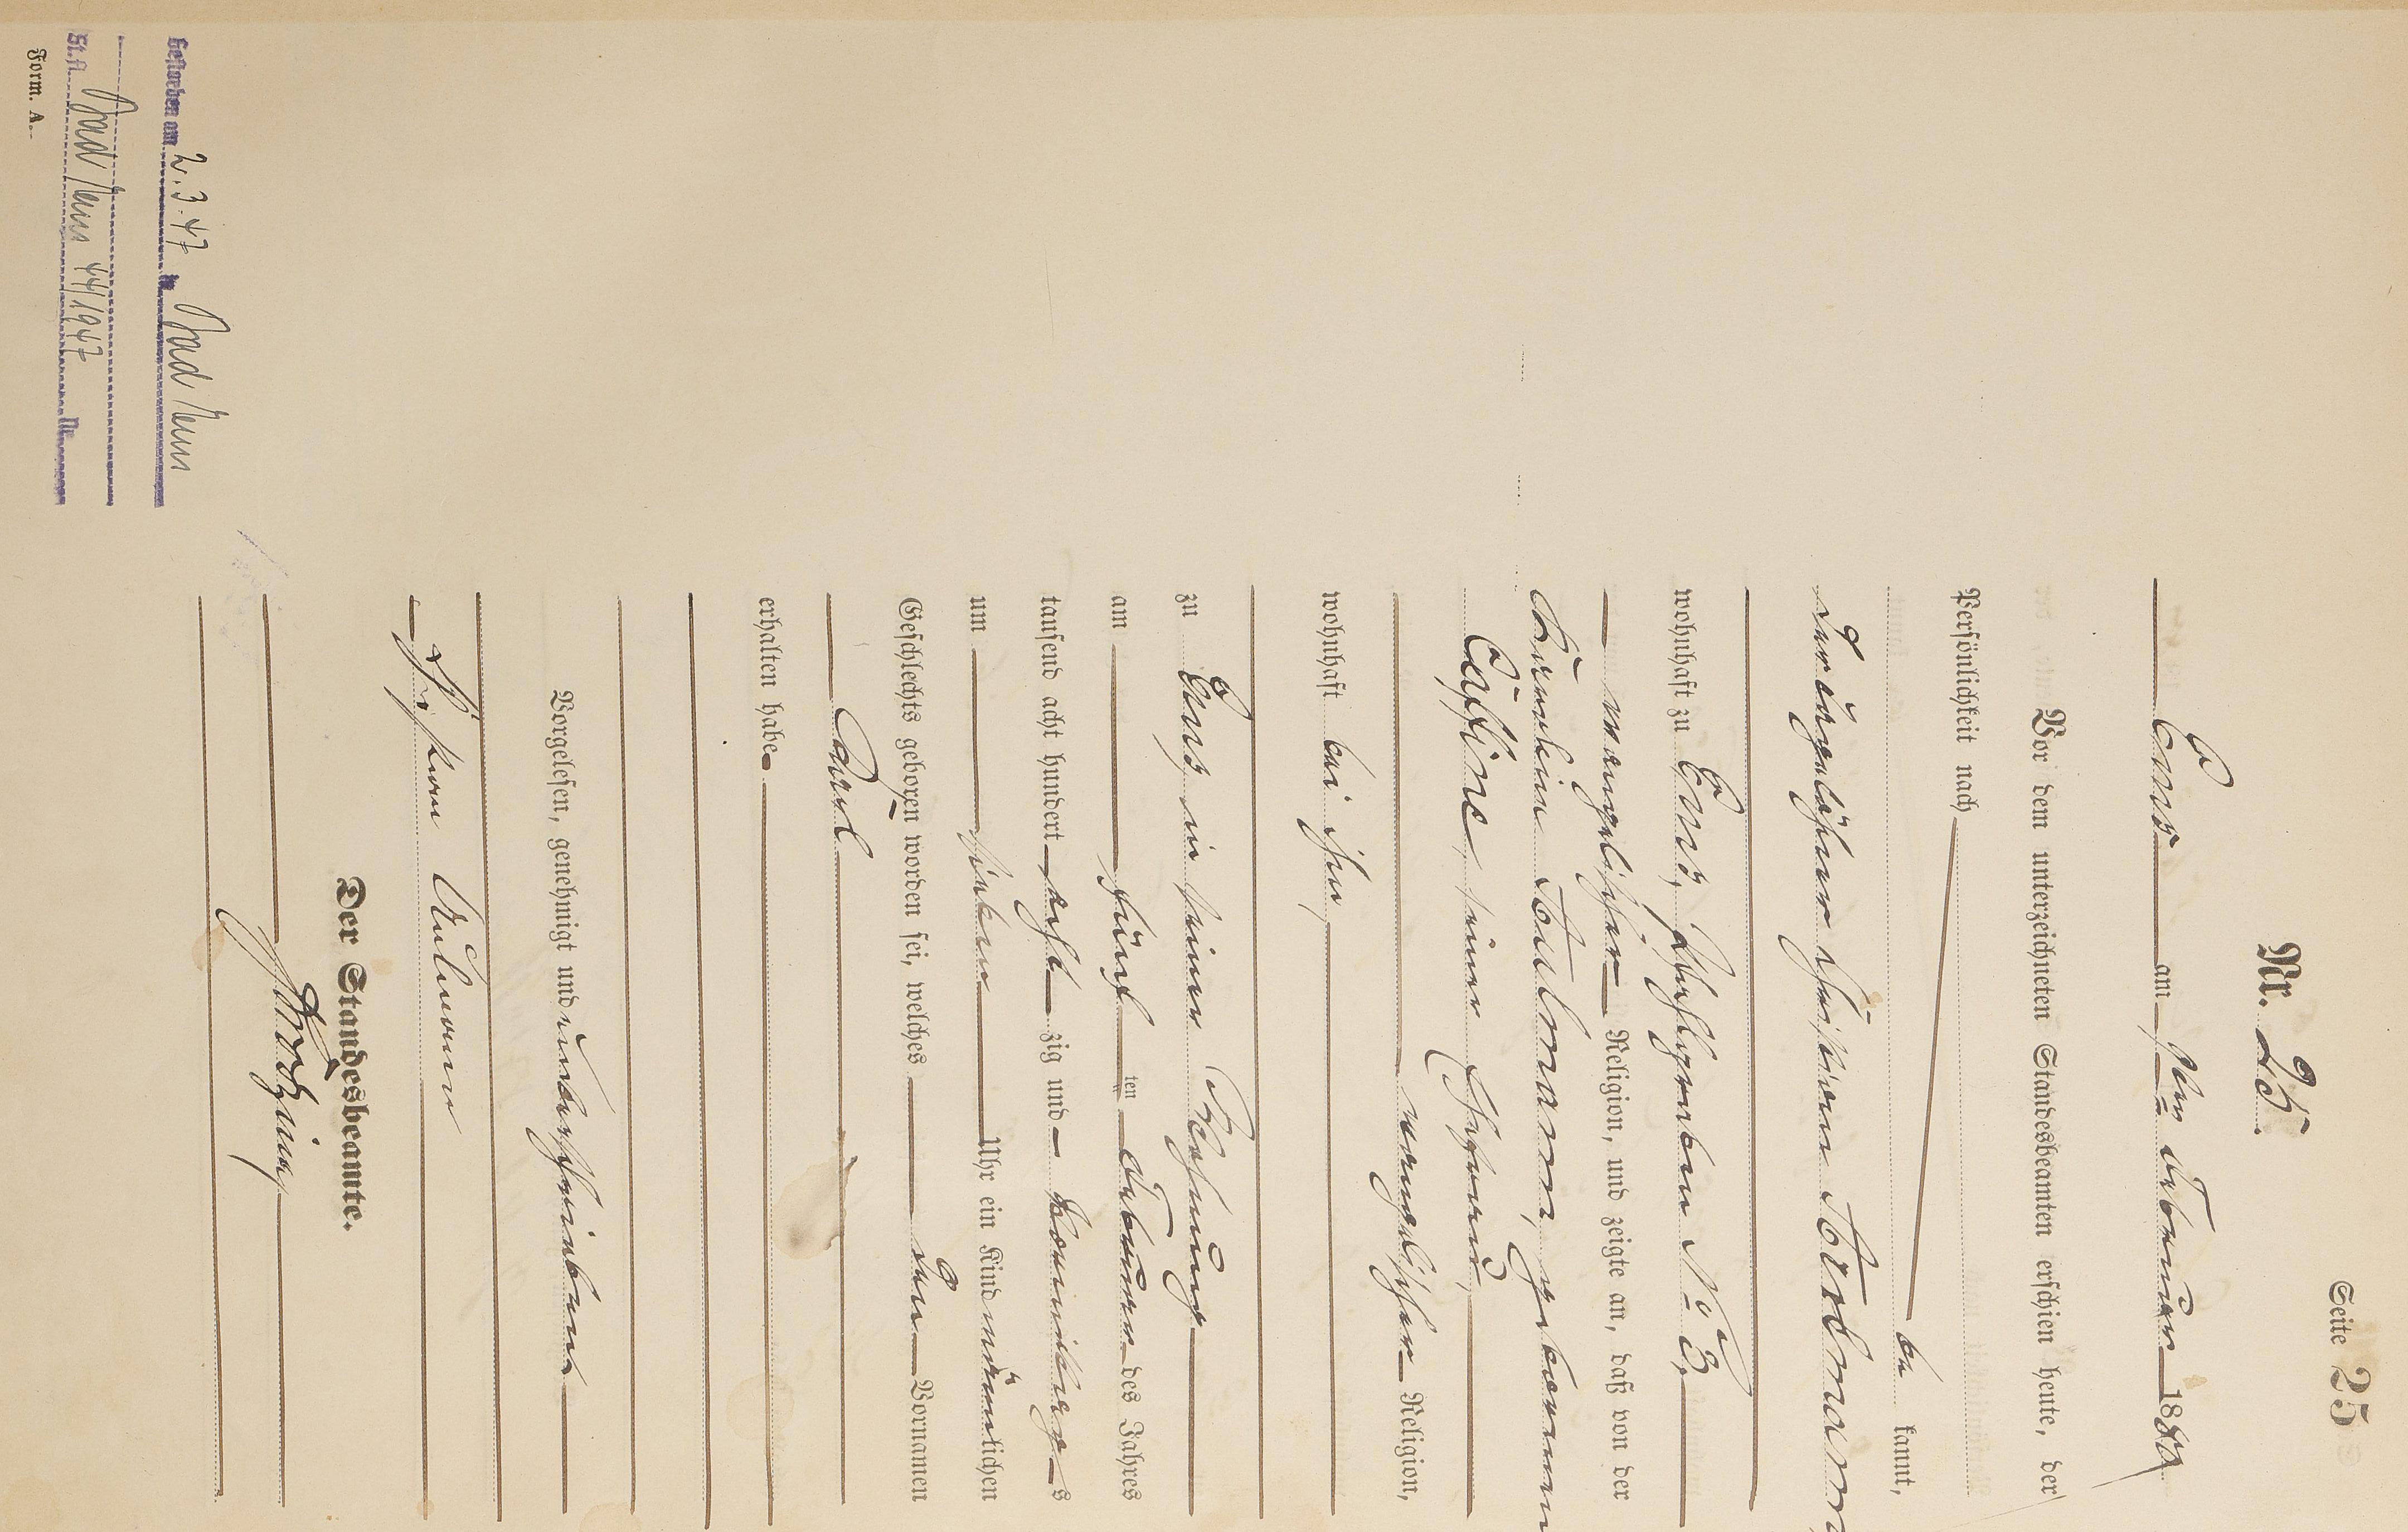 Seite 25
Nr. 25.
Ems am 9ten Februar 1880
Vor dem unterzeichneten Standesbeamten erschien heute, der
Persönlichkeit nach
be kannt,
der Taglöhner Christian
wohnhaft zu Ems, No 3,
evangelischer Religion, und zeigte an, daß von der
geborenen
seiner Ehefrau,
evangelischer Religion,
wohnhaft bei ihm,
zu Ems in seiner Wohnung
am fünf ten Februar des Jahres
tausend acht hundert acht zig und
um sieben Uhr ein Kind männlichen
Geschlechts geboren worden sei, welches den Vornamen
Carl
erhalten habe.
Vorgelesen, genehmigt und unterschrieben
Christian
Der Standesbeamte.
Gestorben am 2.3.47 in Bad Ems
St.A. Bad Ems 44/1947 Nr.
Form. A.